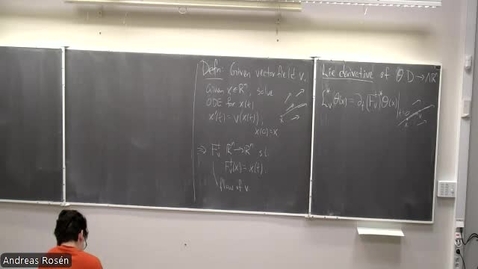 Defn: Given vector field v.
Given x∈ℝⁿ, solve
ODE for x(t)
x'(t) = v(x(t)),
x(0)=x
F_v^t: ℝⁿ→ℝⁿ s.t.
F_v^t(x) = x(t).
flow of v
Lie derivative of Θ: D→Λℝⁿ
Andreas Rosén